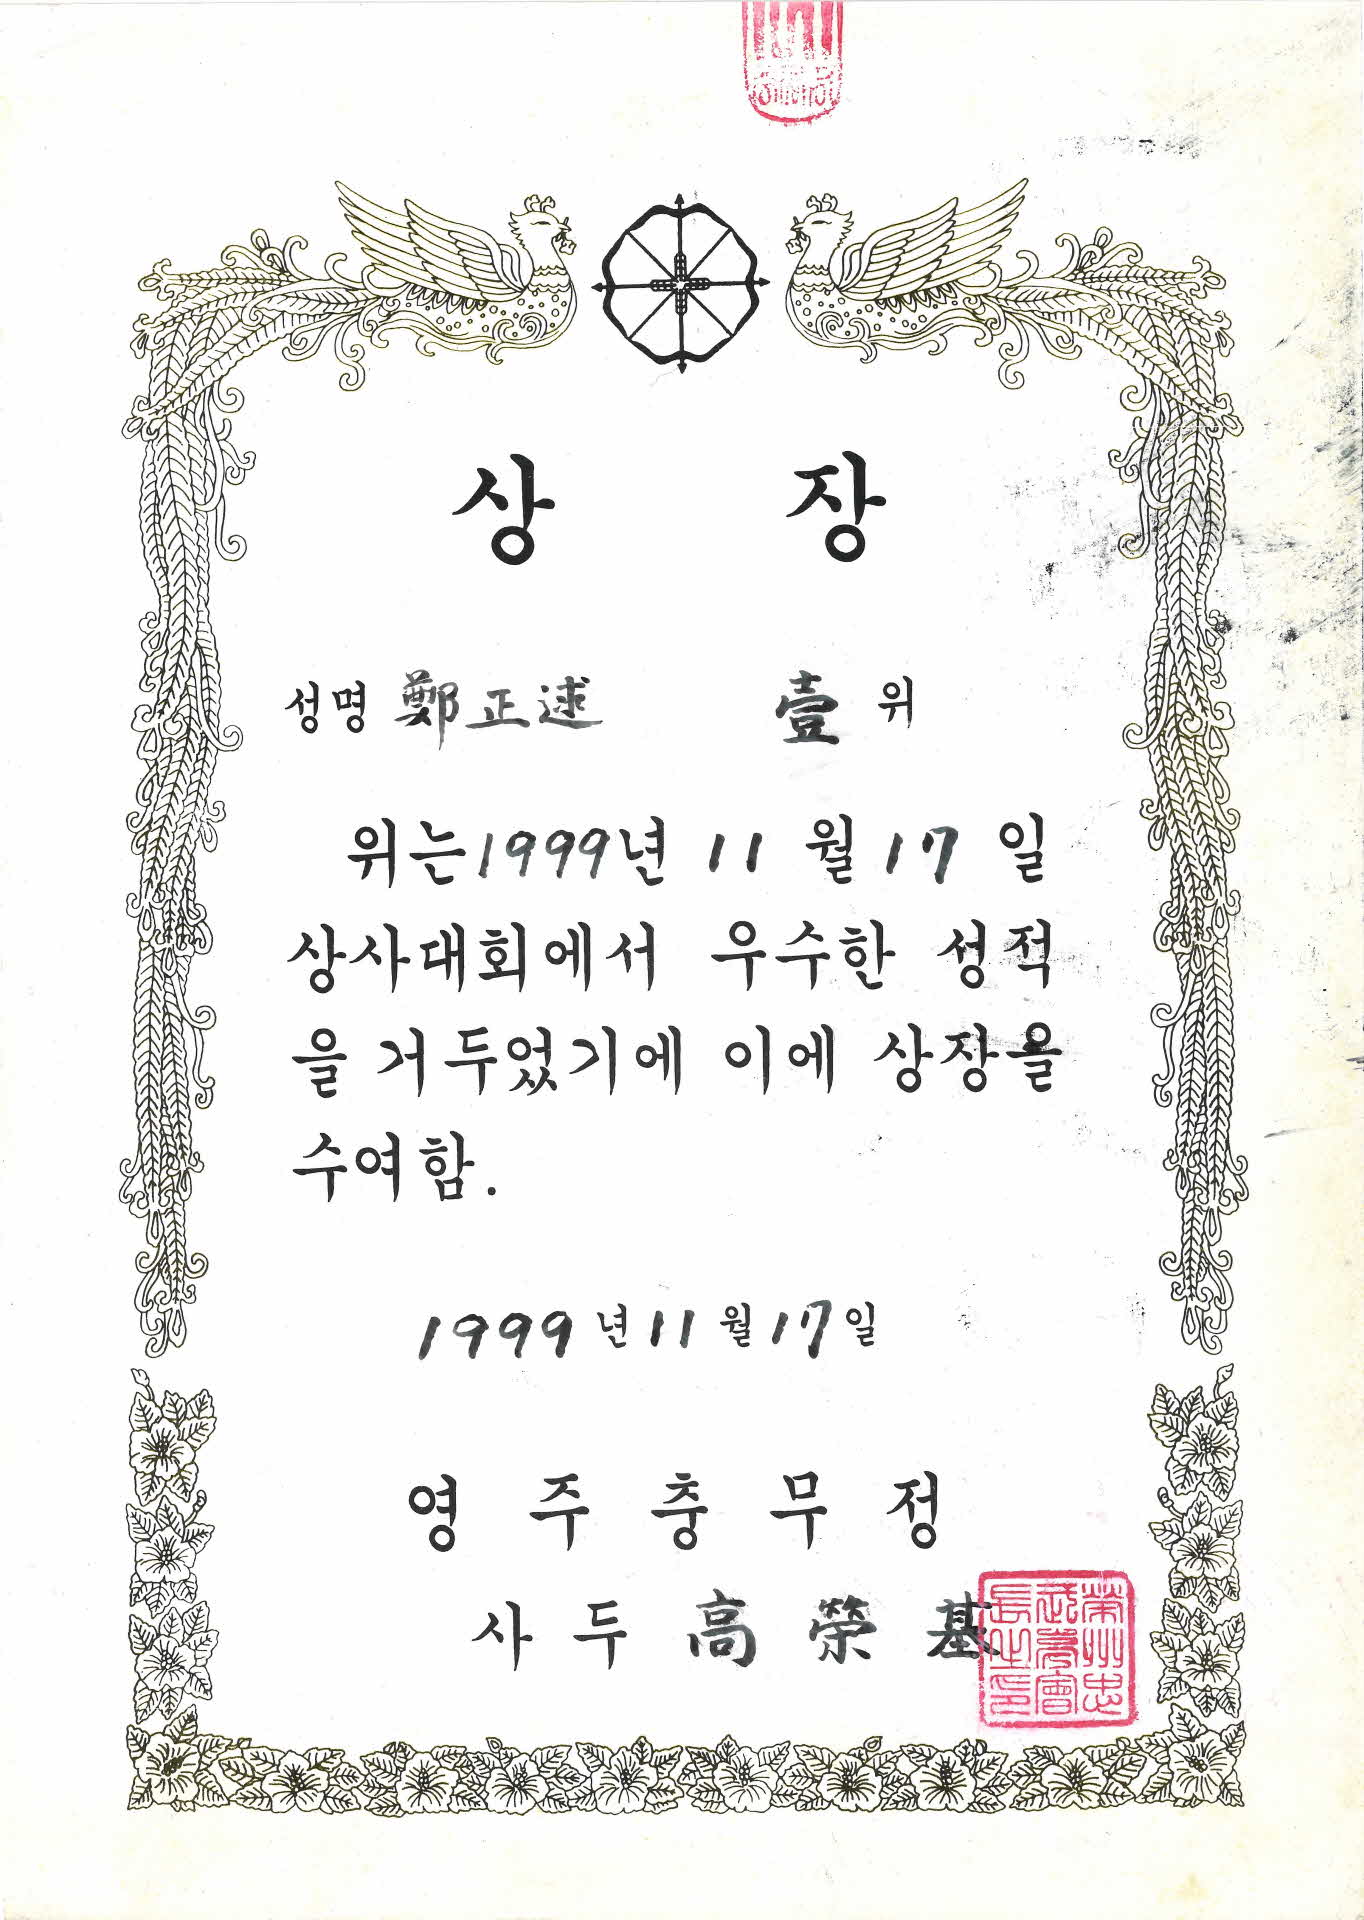 상 장
성명 鄭正逑 壹 위
위는 1999년 11 월 17 일
상사대회에서 우수한 성적
을 거두었기에 이에 상장을
수여함.
1999 년 11 월 17 일
영 주 충 무 정
사 두 高 榮 基
榮州忠
武亭會
長之印